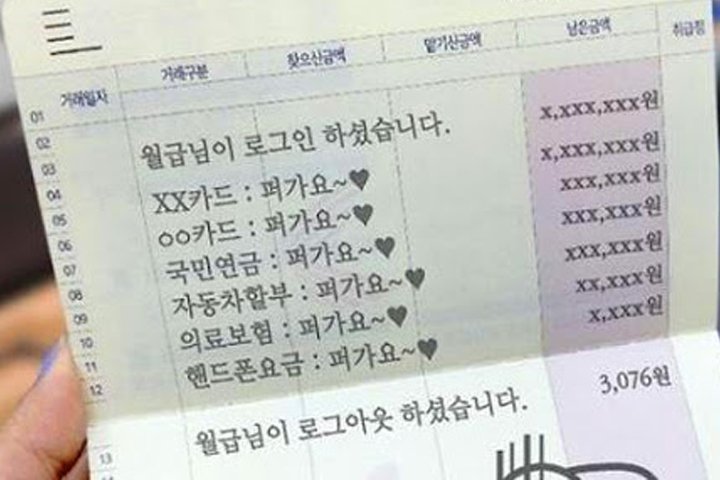 거래일자 거래구분 찾으신금액 맡기신금액 남은금액 취급점
01
02 월급님이 로그인 하셨습니다. x,xxx,xxx원
03 x,xxx,xxx원
04 XX카드 : 퍼가요~♥ xxx,xxx원
05 oo카드 : 퍼가요~♥ xxx,xxx원
06 국민연금 : 퍼가요~♥ xxx,xxx원
07 자동차할부 : 퍼가요~♥ xx,xxx원
08 의료보험 : 퍼가요~♥ x,xxx원
09 핸드폰요금 : 퍼가요~♥
10
11
12 월급님이 로그아웃 하셨습니다. 3,076원
13